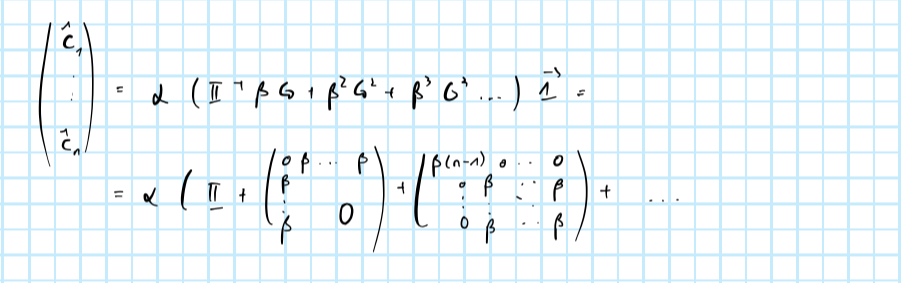 (ĉ₁ ⋮ ĉₙ) = α (𝟙 + βG + β²G² + β³G³ ...) 1⃗ =
= α (𝟙 + (0 β ... β ; β ; ⋮ 0 ; β) + (β(n-1) 0 ... 0 ; 0 β ... β ; ⋮ ⋮ ; 0 β ... β) + ...